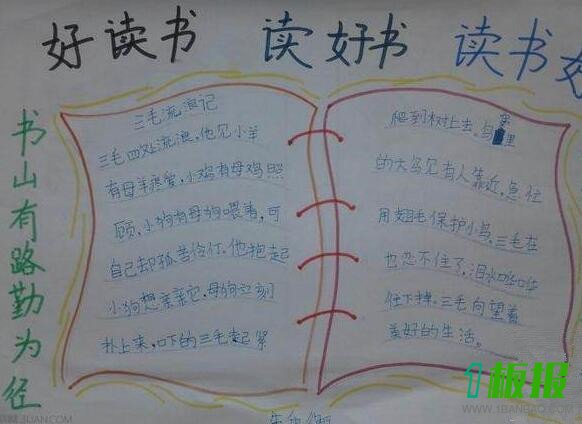 好读书 读好书 读书
书山有路勤为径
三毛流浪记
三毛四处流浪,他见小羊
有母羊疼爱,小鸡有母鸡照
顾,小狗有母狗喂,可
自己却孤苦伶仃,他抱起
小狗想亲亲它,母狗立刻
扑上来,吓的三毛赶紧
爬到树上去。鸟窝里
的大鸟见有人靠近,急忙
用翅膀保护小鸟,三毛在
也忍不住了,泪水哗哗
往下掉。三毛向望着
美好的生活。
1板报
WWW.1BANBAO.COM